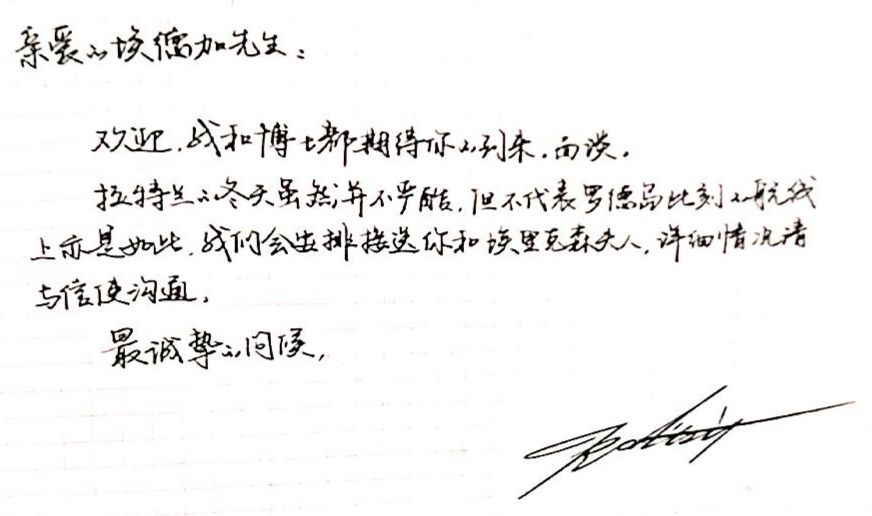 亲爱的埃德加先生：
欢迎，我和博士都期待你的到来，面谈。
拉特兰的冬天虽然并不严酷，但不代表罗德岛此刻的航线
上亦是如此，我们会安排接送你和埃里克森夫人，详细情况请
与信使沟通。
最诚挚的问候，